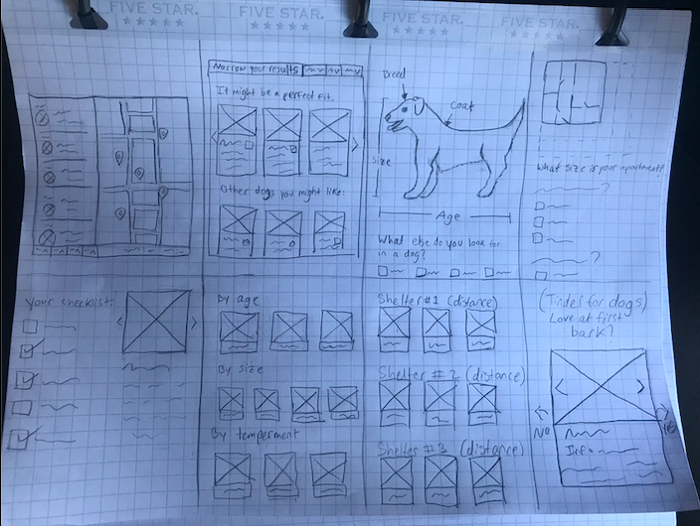 FIVE STAR.
FIVE STAR.
FIVE STAR.
FIVE STAR.
Narrow your results
It might be a perfect fit.
Other dogs you might like:
Breed
Coat
Size
Age
What else do you look for
in a dog?
What size is your apartment?
?
Your checklist:
By age
By size
By temperment
Shelter #1 (distance)
Shelter # 2 (distance)
Shelter # 3 (distance)
(Tinder for dogs)
Love at first
bark?
No
Yes
Info